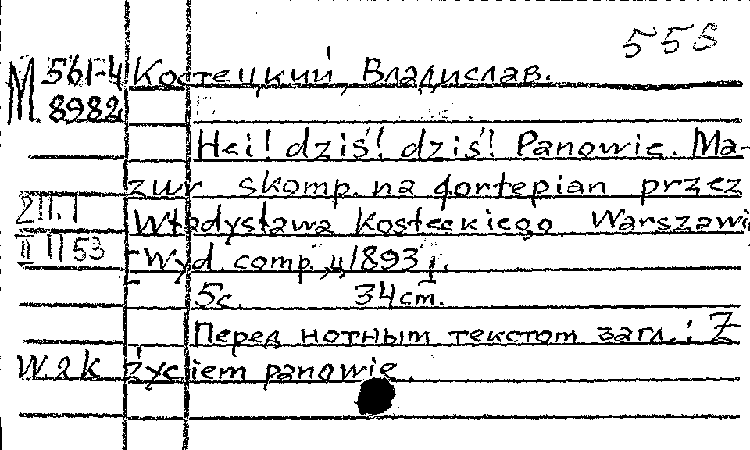 558
М 561-4 Костецкий, Владислав.
8982
Hei! dziś! dziś! Panowie. Ma-
zur skomp. na fortepian przez
2 II. 1 Władysława Kosteckiego Warszawie
II 1153 Wyd. comp., 1893 г.
5с. 34cm.
Перед нотным текстом загл.: Z
W. 2 k życiem panowie.